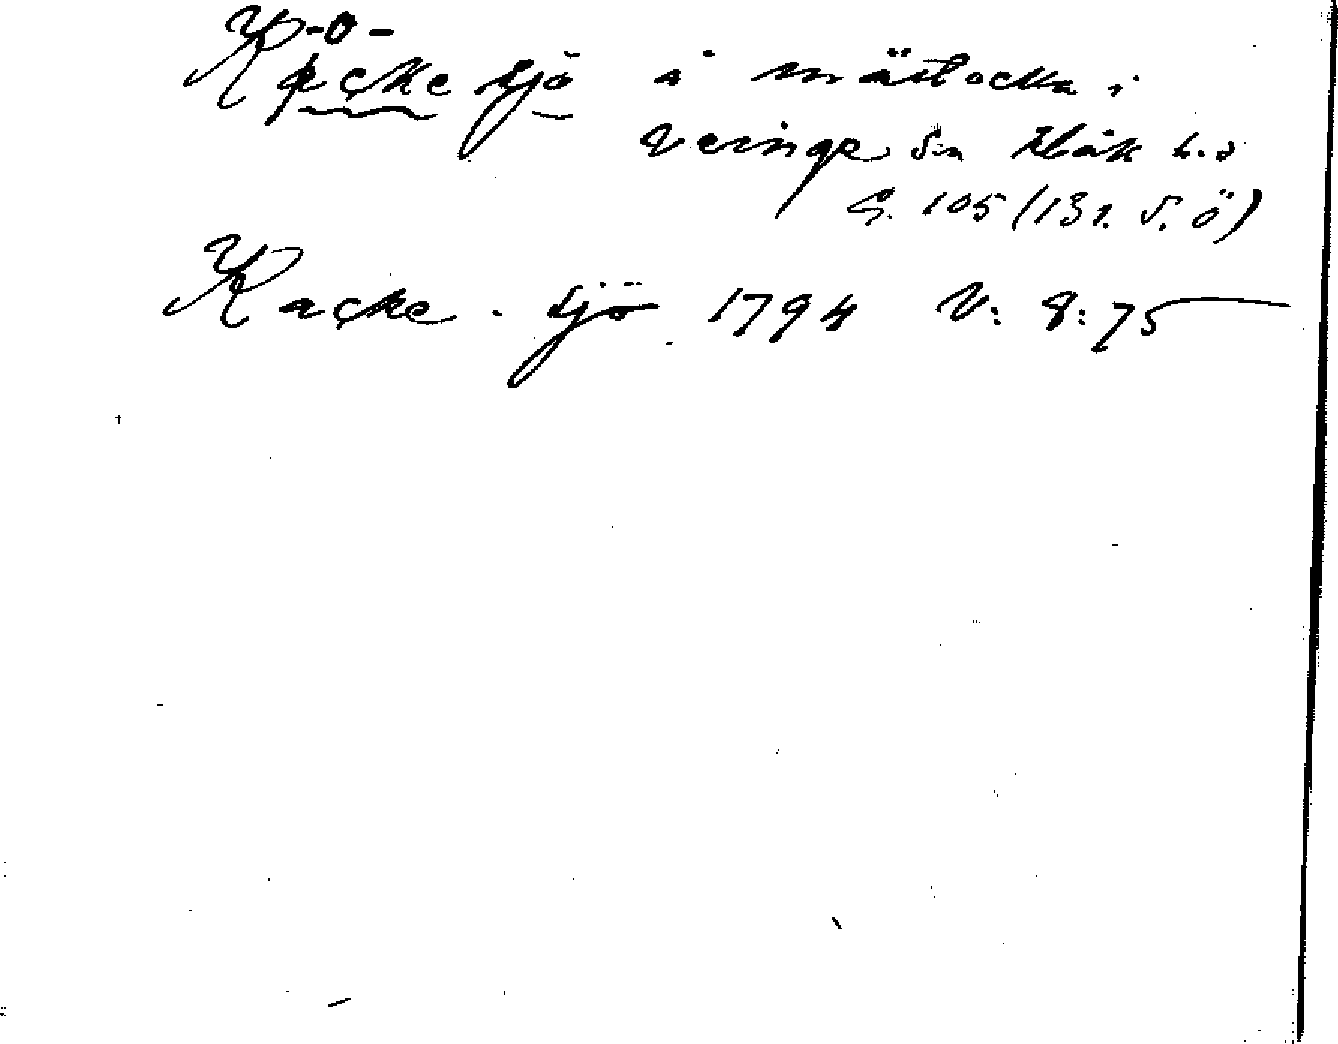 -o-
Kącke sjö å mästocka i
Veinge sn Hbäk h.d
G. 105 (131. S. Ö)
Kacke - sjö 1794 V: 8: 75